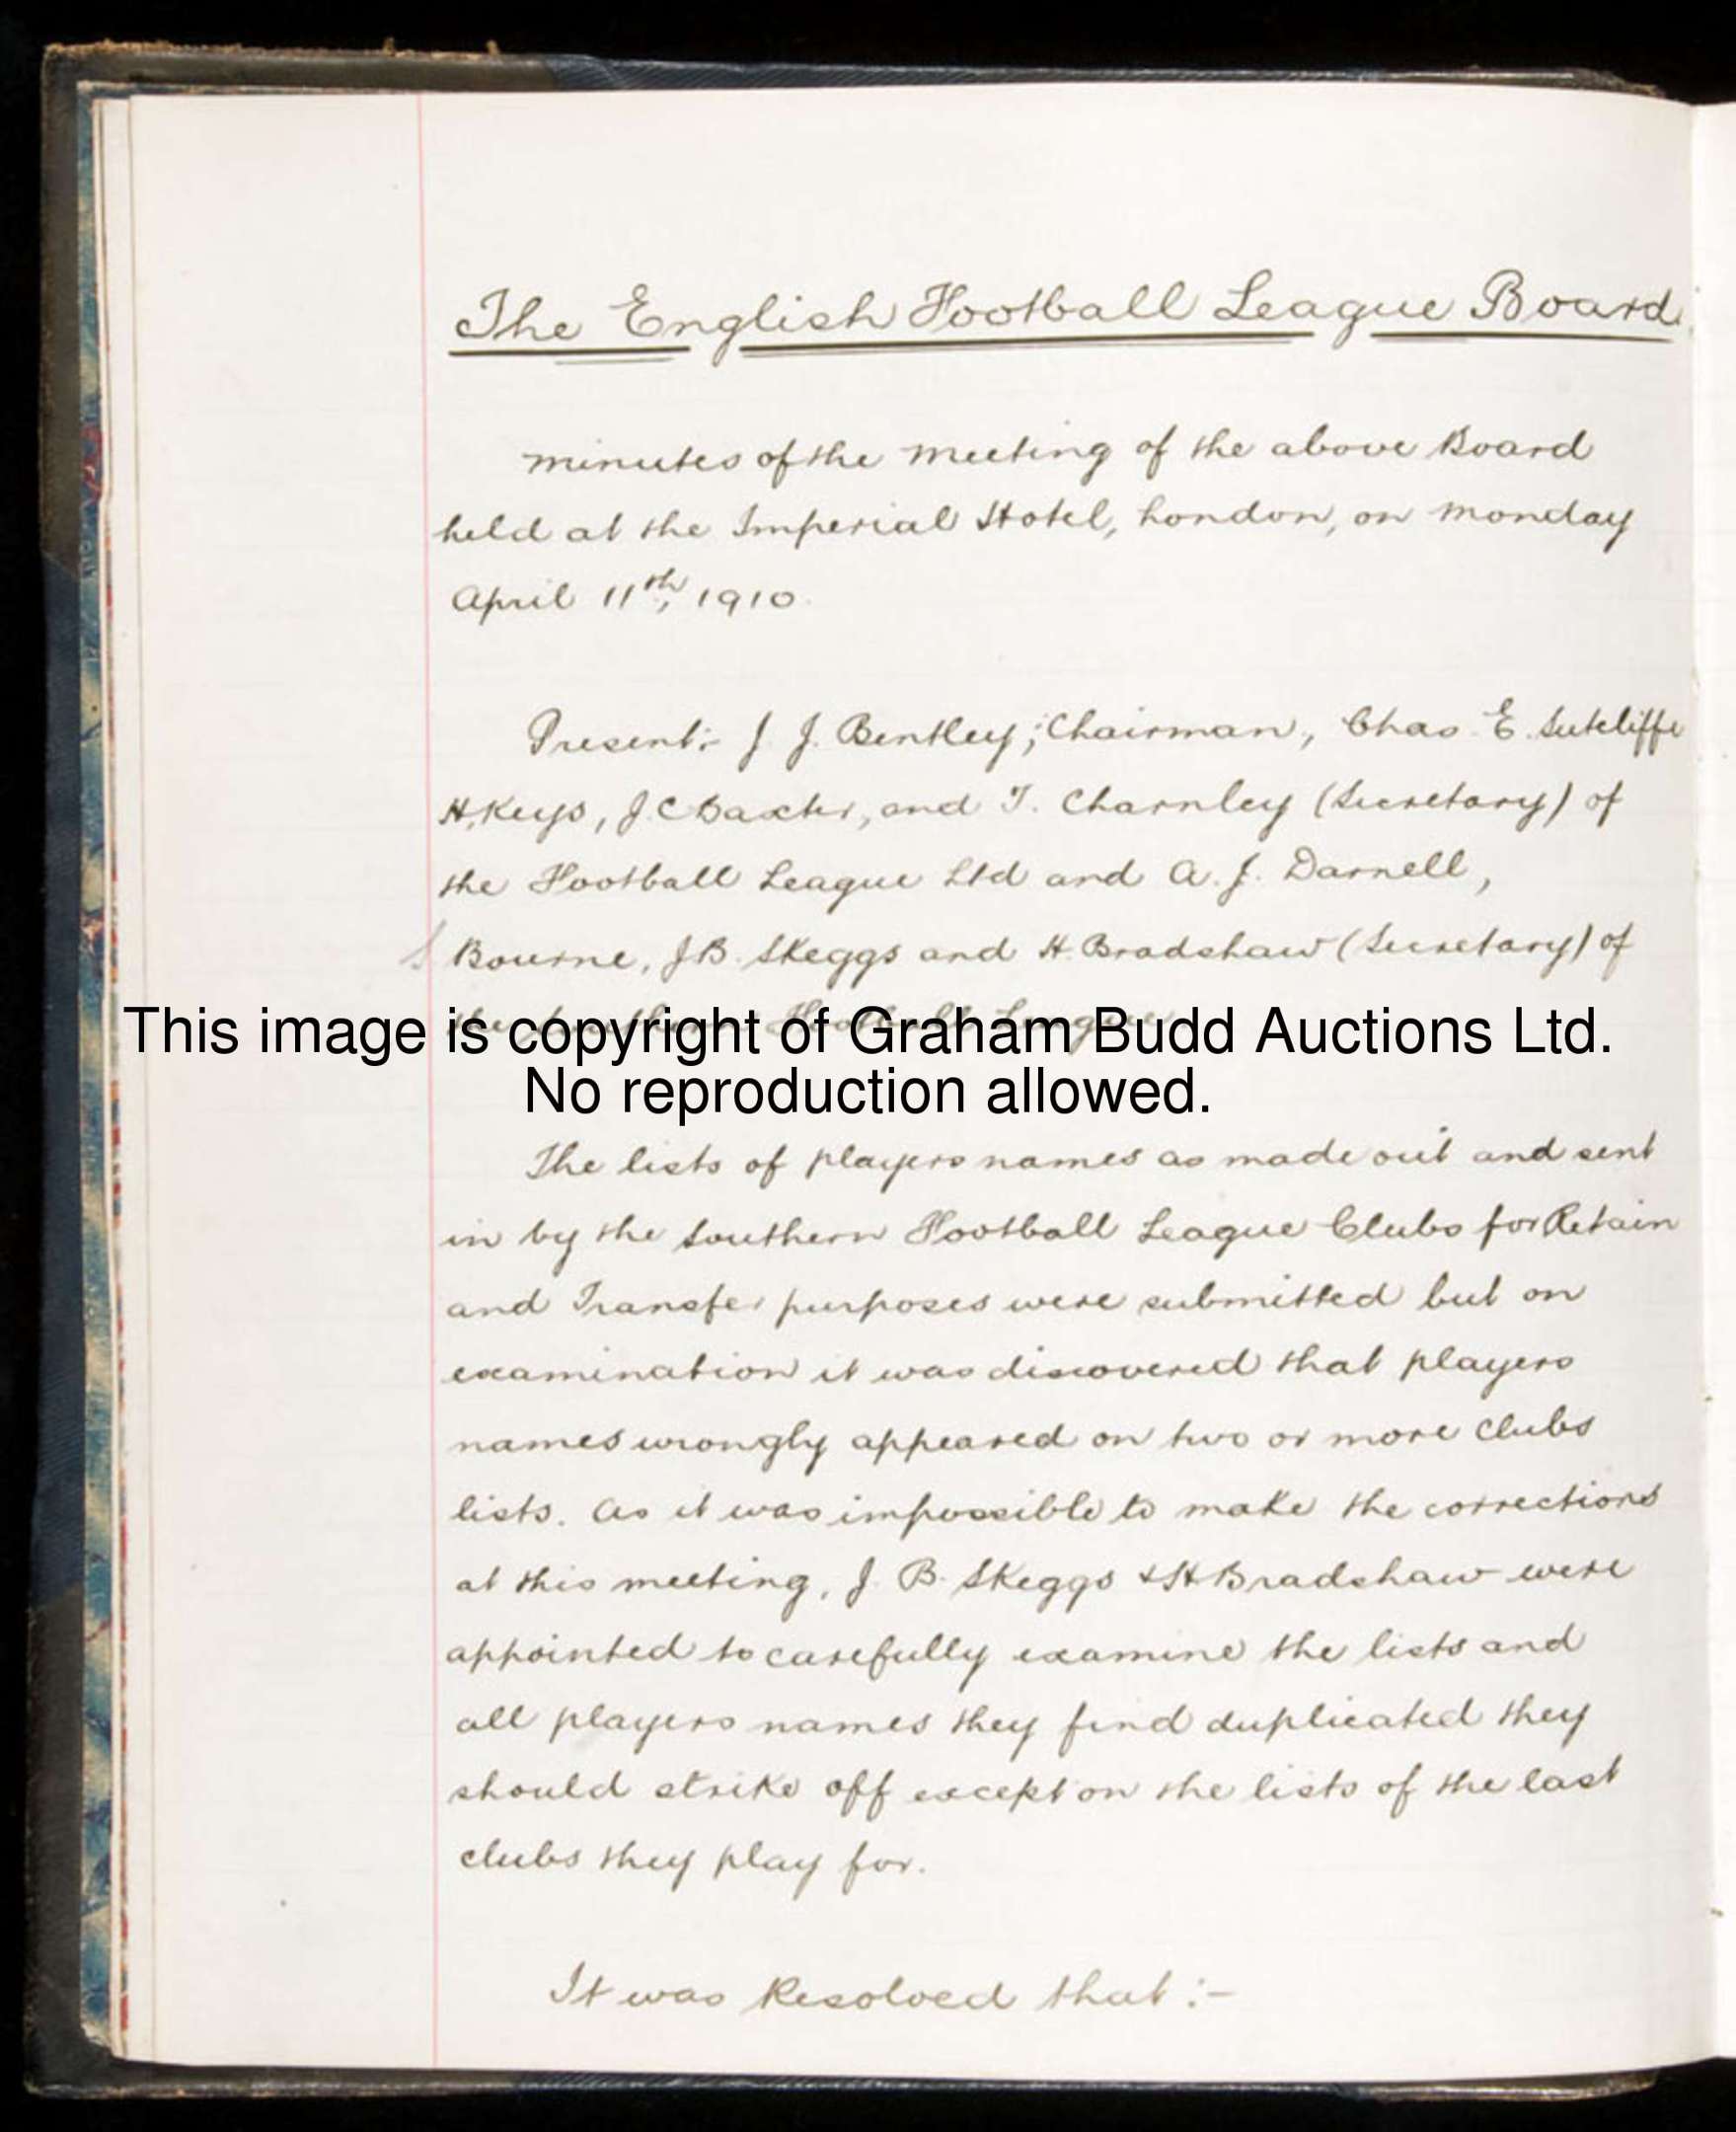 The English Football League Board.
Minutes of the Meeting of the above Board
held at the Imperial Hotel, London, on Monday
April 11th, 1910.
Present:- J. J. Bentley; Chairman, Chas. E. Sutcliffe
H. Keys, J. C Baxter, and T. Charnley (Secretary) of
the Football League Ltd and A. J. Darnell,
S Bourne, J B. Skeggs and H. Bradshaw (Secretary) of
the Southern Football League.
This image is copyright of Graham Budd Auctions Ltd.
No reproduction allowed.
The lists of players names as made out and sent
in by the Southern Football League Clubs for Retain
and Transfer purposes were submitted but on
examination it was discovered that players
names wrongly appeared on two or more Clubs
lists. As it was impossible to make the corrections
at this meeting, J. B. Skeggs & H Bradshaw were
appointed to carefully examine the lists and
all players names they find duplicated they
should strike off except on the lists of the last
clubs they play for.
It was Resolved that :-